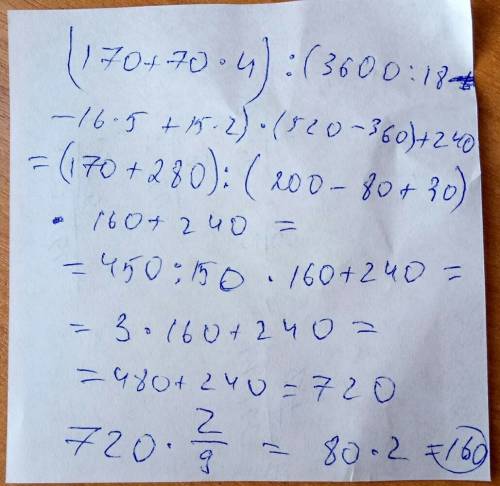 (170+70·4):(3600:18-
-16·5+15·2)·(520-360)+240
=(170+280):(200-80+30)
·160+240=
=450:150·160+240=
=3·160+240=
=480+240=720
720·2/9=80·2=160